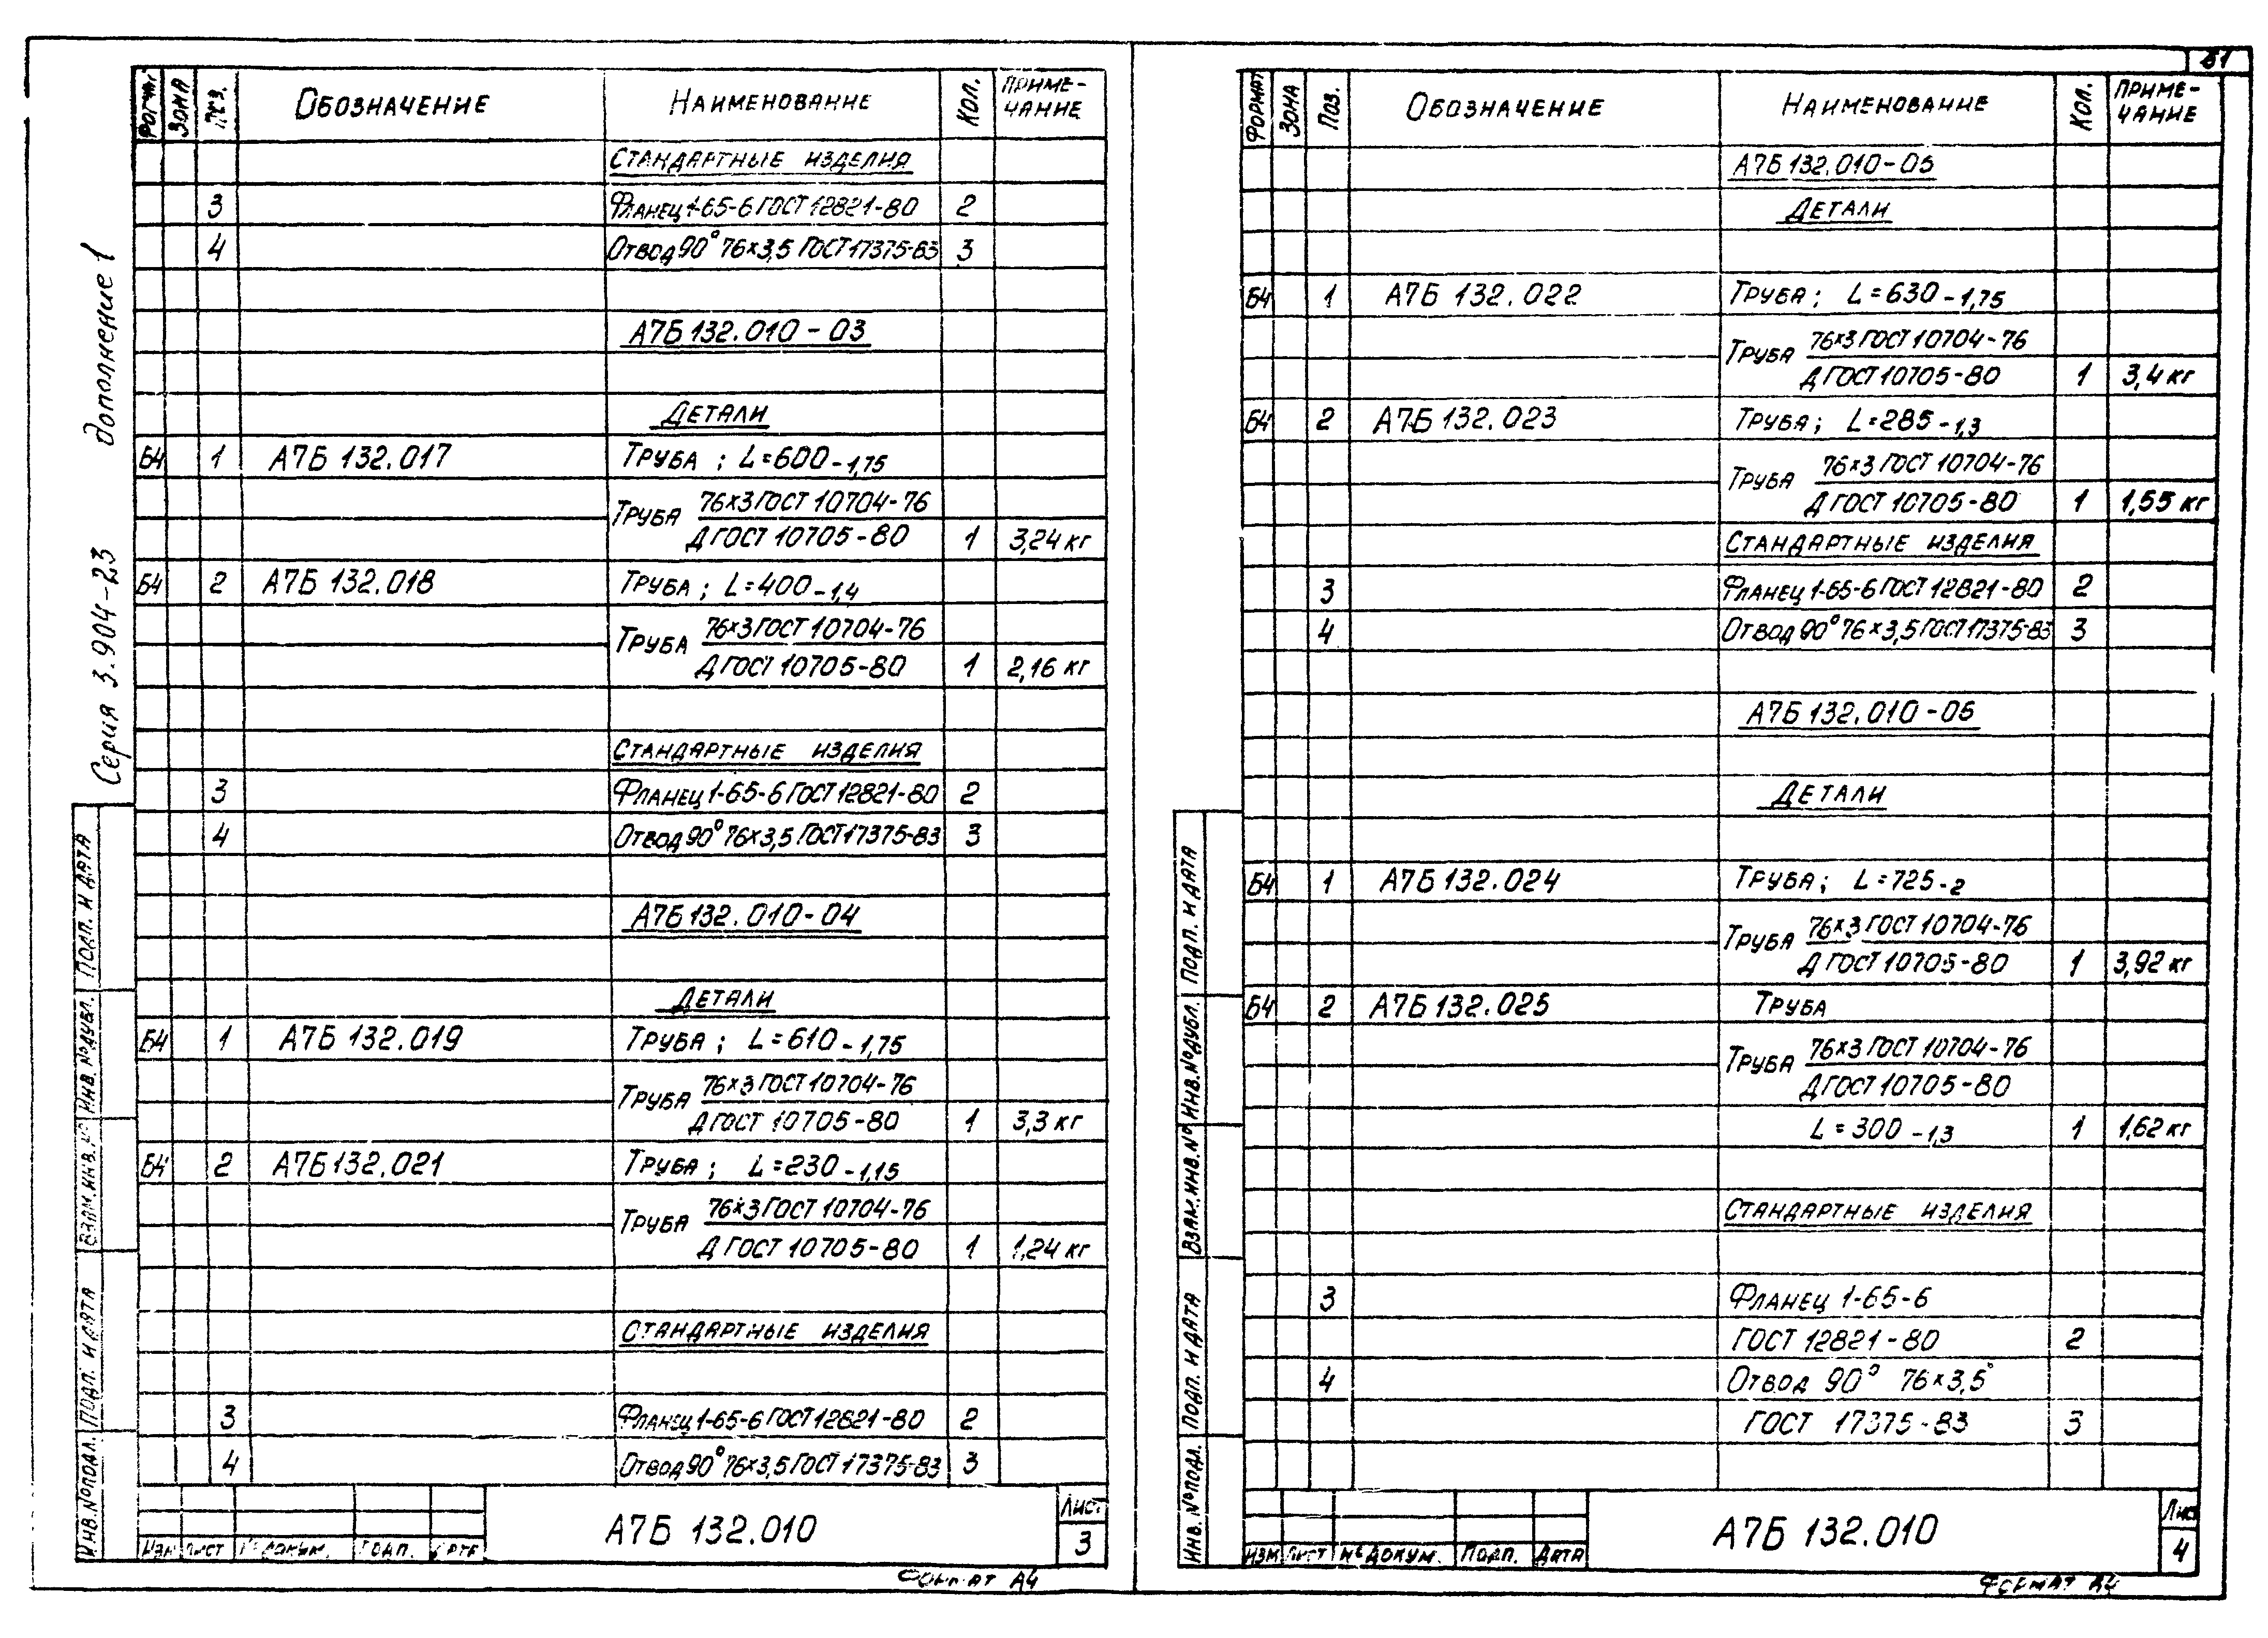 Серия 3.904-23 дополнение 1
Формат Зона Поз. Обозначение Наименование Кол. Приме-
чание
Стандартные изделия
3 Фланец 1-65-6 ГОСТ 12821-80 2
4 Отвод 90° 76×3,5 ГОСТ 17375-83 3
А7Б 132.010-03
Детали
Б4 1 А7Б 132.017 Труба; L=600-1,75
Труба 76×3 ГОСТ 10704-76
Д ГОСТ 10705-80 1 3,24 кг
Б4 2 А7Б 132.018 Труба; L=400-1,4
Труба 76×3 ГОСТ 10704-76
Д ГОСТ 10705-80 1 2,16 кг
Стандартные изделия
3 Фланец 1-65-6 ГОСТ 12821-80 2
4 Отвод 90° 76×3,5 ГОСТ 17375-83 3
А7Б 132.010-04
Детали
Б4 1 А7Б 132.019 Труба; L=610-1,75
Труба 76×3 ГОСТ 10704-76
Д ГОСТ 10705-80 1 3,3 кг
Б4 2 А7Б 132.021 Труба; L=230-1,15
Труба 76×3 ГОСТ 10704-76
Д ГОСТ 10705-80 1 1,24 кг
Стандартные изделия
3 Фланец 1-65-6 ГОСТ 12821-80 2
4 Отвод 90° 76×3,5 ГОСТ 17375-83 3
Инв. № подл. Подп. и дата Взам. инв. № Инв. № дубл. Подп. и дата
Изм Лист № докум. Подп. Дата
А7Б 132.010
Лист
3
Формат А4
51
Формат Зона Поз. Обозначение Наименование Кол. Приме-
чание
А7Б 132.010-05
Детали
Б4 1 А7Б 132.022 Труба; L=630-1,75
Труба 76×3 ГОСТ 10704-76
Д ГОСТ 10705-80 1 3,4 кг
Б4 2 А7Б 132.023 Труба; L=285-1,3
Труба 76×3 ГОСТ 10704-76
Д ГОСТ 10705-80 1 1,55 кг
Стандартные изделия
3 Фланец 1-65-6 ГОСТ 12821-80 2
4 Отвод 90° 76×3,5 ГОСТ 17375-83 3
А7Б 132.010-06
Детали
Б4 1 А7Б 132.024 Труба; L=725-2
Труба 76×3 ГОСТ 10704-76
Д ГОСТ 10705-80 1 3,92 кг
Б4 2 А7Б 132.025 Труба
Труба 76×3 ГОСТ 10704-76
Д ГОСТ 10705-80
L=300-1,3 1 1,62 кг
Стандартные изделия
3 Фланец 1-65-6
ГОСТ 12821-80 2
4 Отвод 90° 76×3,5
ГОСТ 17375-83 3
Инв. № подл. Подп. и дата Взам. инв. № Инв. № дубл. Подп. и дата
Изм Лист № докум. Подп. Дата
А7Б 132.010
Лист
4
Формат А4